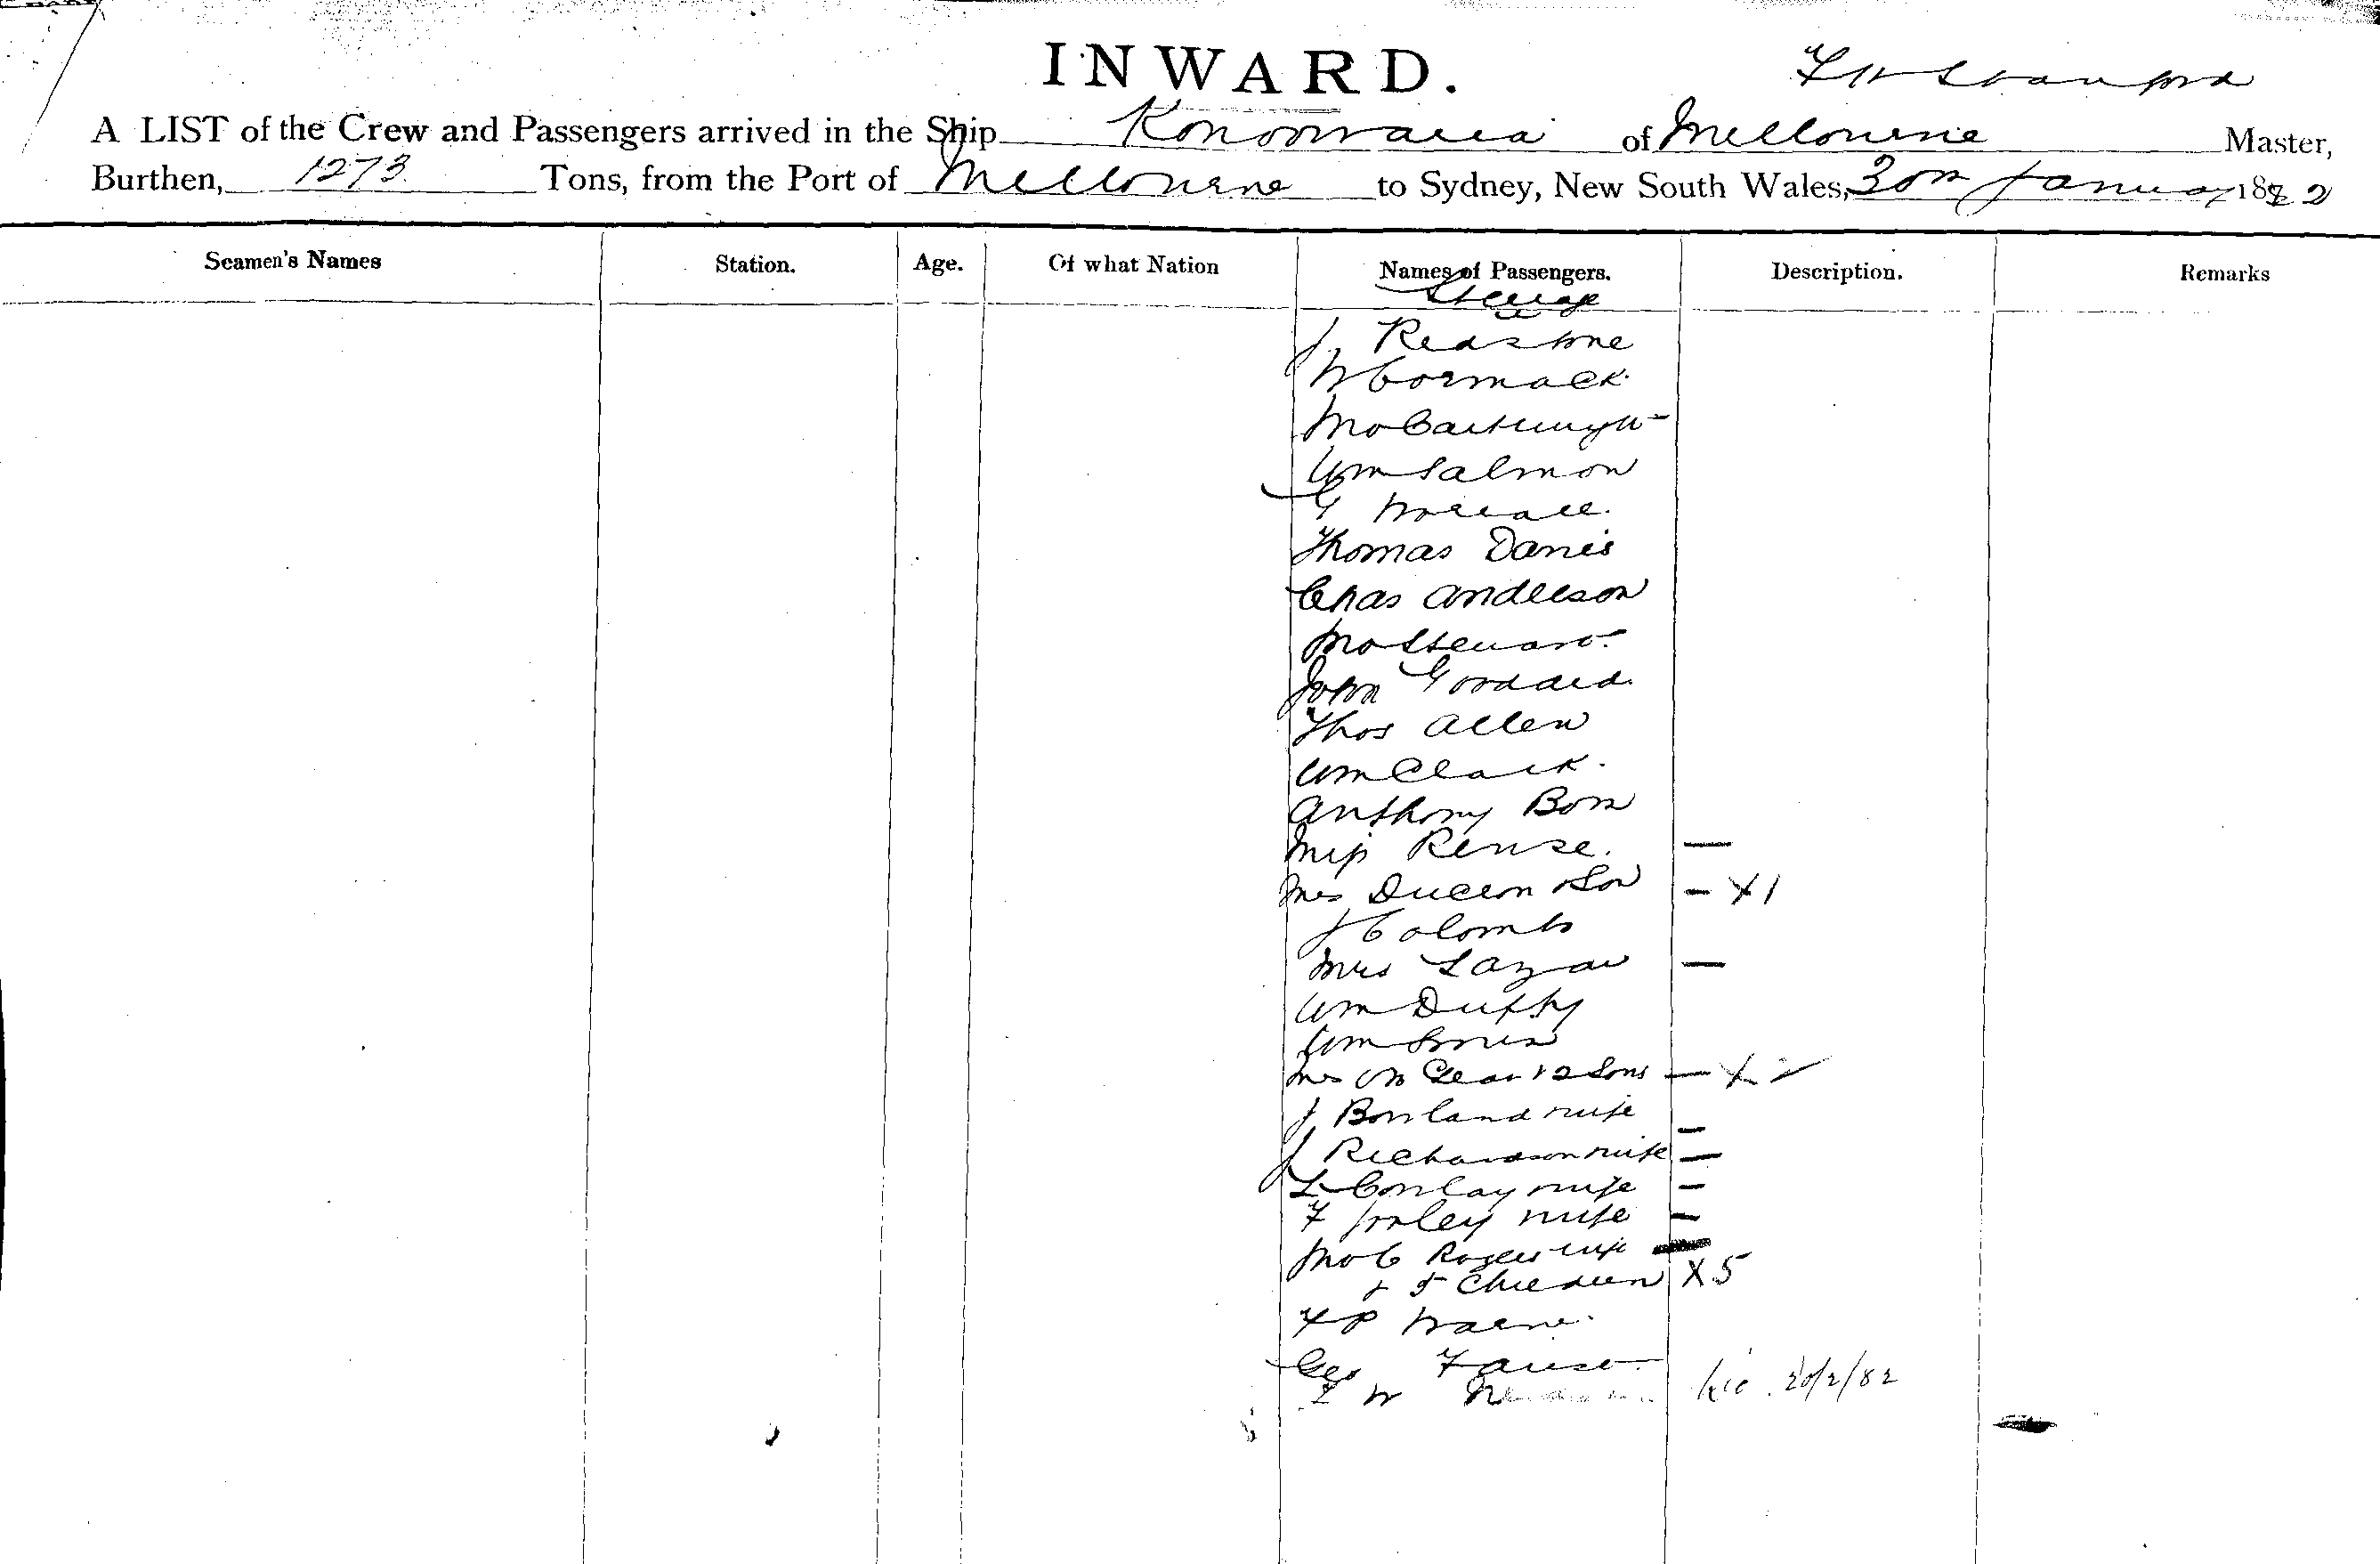 INWARD.
A LIST of the Crew and Passengers arrived in the Ship Konoowarra of Melbourne Master,
Burthen, 1273 Tons, from the Port of Melbourne to Sydney, New South Wales, 30th January 1882
Seamen's Names Station. Age. Of what Nation Names of Passengers. Description. Remarks
Steerage
J Redstone
W Cormack
Mr Cartwright
Wm Salmon
G Wallace.
Thomas Davis
Chas Anderson
Mr Steward
John Goddard.
Thos Allen
Wm Clark.
Anthony Born
Miss Rense. —
Mrs & Son — X 1
J Colomb
Mrs Lazar —
Wm Duffy
Wm
Mrs & 2 Sons — X 2
J Bowland wife —
J Richardson wife —
L Conlay wife —
F wife —
Mr C Rogers wife
& 5 Children X 5
Geo
F W
20/2/82